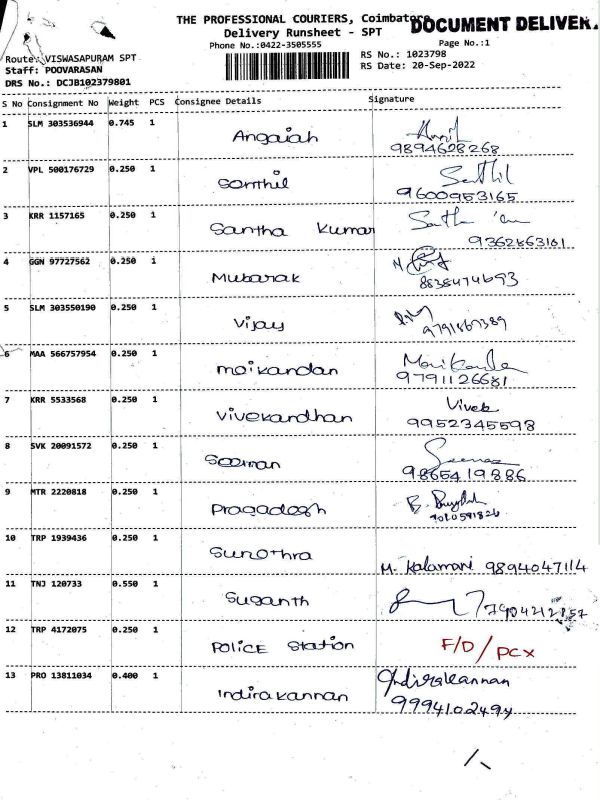 THE PROFESSIONAL COURIERS, Coimbatore
DOCUMENT DELIVER
Delivery Runsheet - SPT
Phone No.:0422-3505555
Page No.:1
RS No.: 1023798
RS Date: 20-Sep-2022
Route: VISWASAPURAM SPT
Staff: POOVARASAN
DRS No.: DCJB102379801
S No Consignment No Weight PCS Consignee Details Signature
1 SLM 303536944 0.745 1 Angaiah
9894628268
2 VPL 500176729 0.250 1 Senthil Senthil
9600953165
3 KRR 1157165 0.250 1 Santha Kumar
9362863161
4 GGN 97727562 0.250 1 Mubarak
8838474693
5 SLM 303550190 0.250 1 Vijay
9791867389
6 MAA 566757954 0.250 1 manikandan Manikanda
9791126681
7 KRR 5533568 0.250 1 Vivekandhan Vivek
9952345598
8 SVK 20091572 0.250 1 Seeman
9865419886
9 MTR 2220818 0.250 1 Pragadesh
10 TRP 1939436 0.250 1 Sunothra
M. Kalamani 9894047114
11 TNJ 120733 0.550 1 Suganth
7904212857
12 TRP 4172075 0.250 1 POLICE Station F/D / PCX
13 PRO 13811034 0.400 1 Indirakannan Indirakannan
9994102494